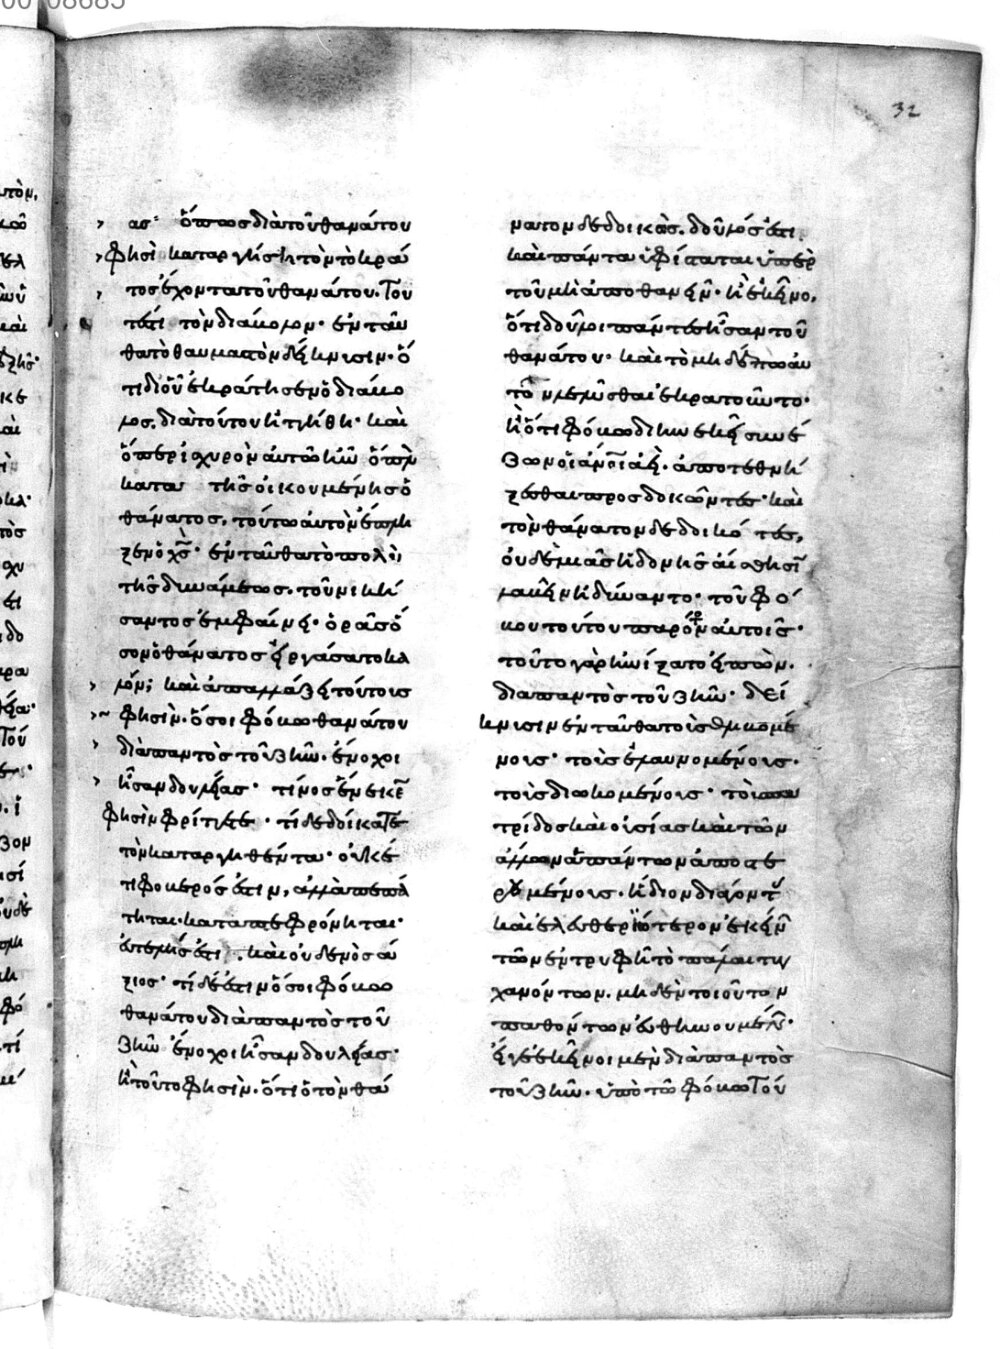 32
ας· ὅπως διὰ τοῦ θανάτου
φησὶ καταργήσῃ τὸν τὸ κρά
τος ἔχοντα τοῦ θανάτου. Του
τέστι τὸν διάβολον· ἐνταῦ
θα τὸ θαυμαστὸν δείκνυσιν· ὅ
τι δι' οὗ ἐκράτησεν ὁ διάβο
λος, διὰ τούτου ἡττήθη· καὶ
ὅπερ ἰσχυρὸν αὐτῶ ἦν ὅπλον
κατα τῆς οἰκουμένης ὁ
θάνατος, τούτω αὐτὸν ἔπλη
ξεν ὁ χς· ἐνταῦθα τὸ πολὺ
τῆς δυνάμεως. τοῦ νική
σαντος ἐμφαίνει· ὁρᾶς ὅ
σον ὁ θάνατος εἰργάσατο κα
λόν; καὶ ἀπαλλάξει τούτους
φησὶν. ὅσοι φόβω θανάτου
διὰ παντὸς τοῦ ζῆν. ἔνοχοι
ἦσαν δουλείας· τίνος ἕνεκεν
φησὶν φρίττετε· τί δεδοίκατε
τὸν καταργηθέντα· οὐκέ
τι φοβερός ἐστιν, ἀλλὰ πεπά
τηται. καταπεφρόνηται·
εὐτελής ἐστι. καὶ οὐδενὸς ἄ
ξιος· τί δέ ἐστιν ὅσοι φόβω
θανάτου διὰ παντὸς τοῦ
ζῆν ἔνοχοι ἦσαν δουλείας·
ἢ τοῦτο φησὶν. ὅτι ὁ τὸν θά
νατον δεδοικὼς. δοῦλός ἐστι.
καὶ πάντα ὑφίσταται ὑπὲρ
τοῦ μὴ ἀποθανεῖν· ἢ ἐκεῖνο,
ὅτι δοῦλοι πάντες ἦσαν τοῦ
θανάτου· καὶ τὸ μηδέπω αὐ
τὸν λελύσθαι ἐκρατοῦντο·
ἢ ὅτι φόβω διηνεκεῖ συνέ
ζων οἱ ἄνοι ἀεὶ. ἀποτεθνή
ξεσθαι προσδοκῶντες· καὶ
τὸν θάνατον δεδοικότες,
οὐδεμιᾶς ἡδονῆς αἴσθησιν
λαβεῖν ἠδύναντο· τοῦ φό
βου τούτου παρόντος αὐτοῖς·
τοῦτο γὰρ ἠνίξατο εἰπὼν.
διὰ παντὸς τοῦ ζῆν· δεί
κνυσιν ἐνταῦθα τοῖς θλιβομέ
νοις· τοῖς ἐλαυνομένοις·
τοῖς διωκομένοις· τοῖς πα
τρίδος καὶ οὐσίας καὶ τῶν
ἄλλων ἁπάντων ἀποστε
ρουμένοις. ἥδιον διάγοντας
καὶ ἐλευθεριώτερον ἐκείνων
τῶν ἐν τρυφῇ τὸ παλαι τυγ
χανόντων. μηδὲν τοιοῦτον
παθόντων εὐθηνουμένων·
εἴγε ἐκεῖνοι μὲν διὰ παντὸς
τοῦ ζῆν. ὑπὸ τῶ φόβω Του